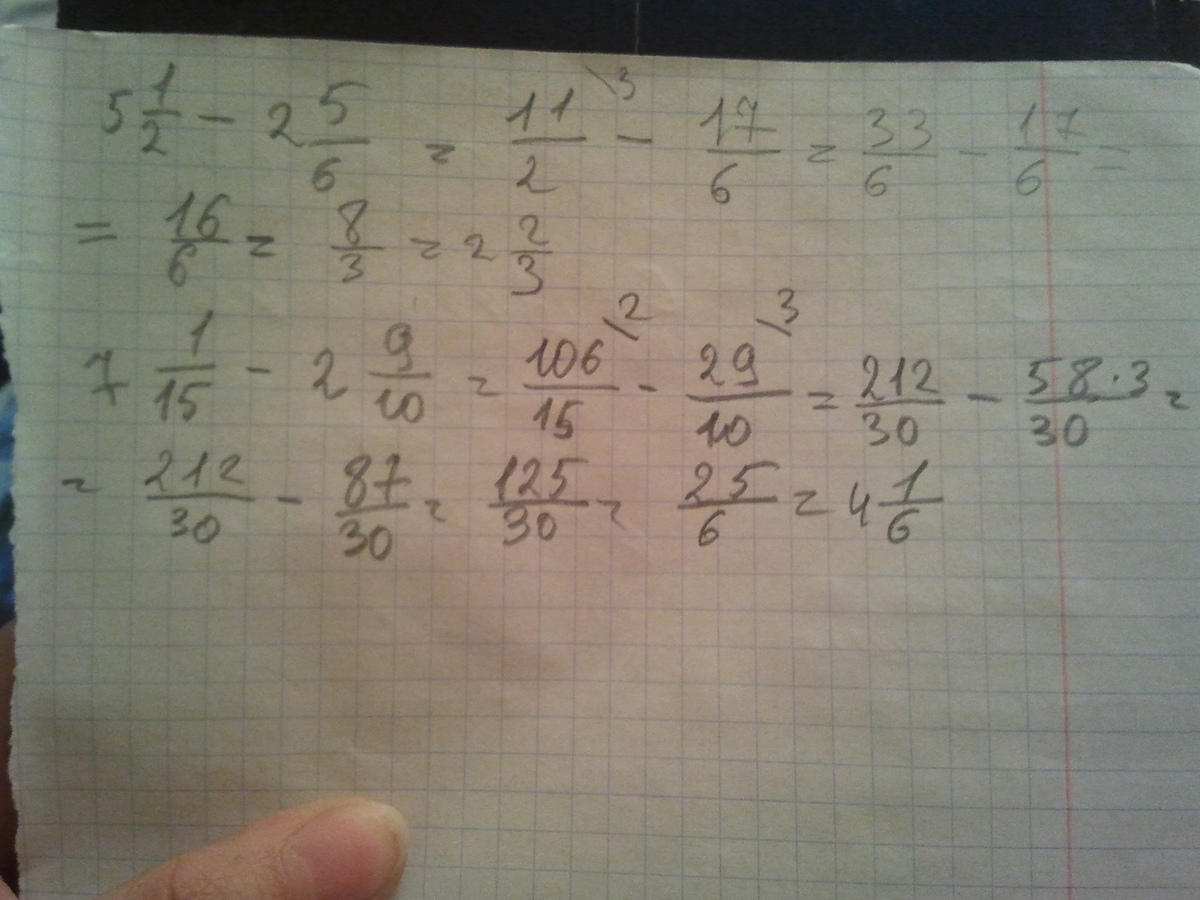 5 1/2 - 2 5/6 = 11/2 \3 - 17/6 = 33/6 - 17/6 =
= 16/6 = 8/3 = 2 2/3
7 1/15 - 2 9/10 = 106/15 \2 - 29/10 \3 = 212/30 - 58·3/30 =
= 212/30 - 87/30 = 125/30 = 25/6 = 4 1/6